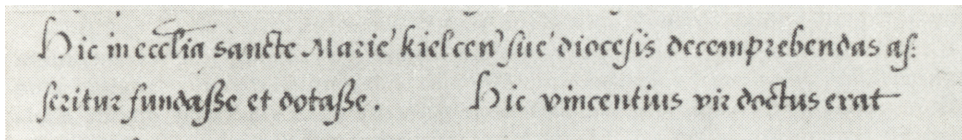 Hic in eccłia sancte Marie kielceń sue diocesis decem prebendas as:
seritur fundasse et dotasse. Hic vincentius vir doctus erat